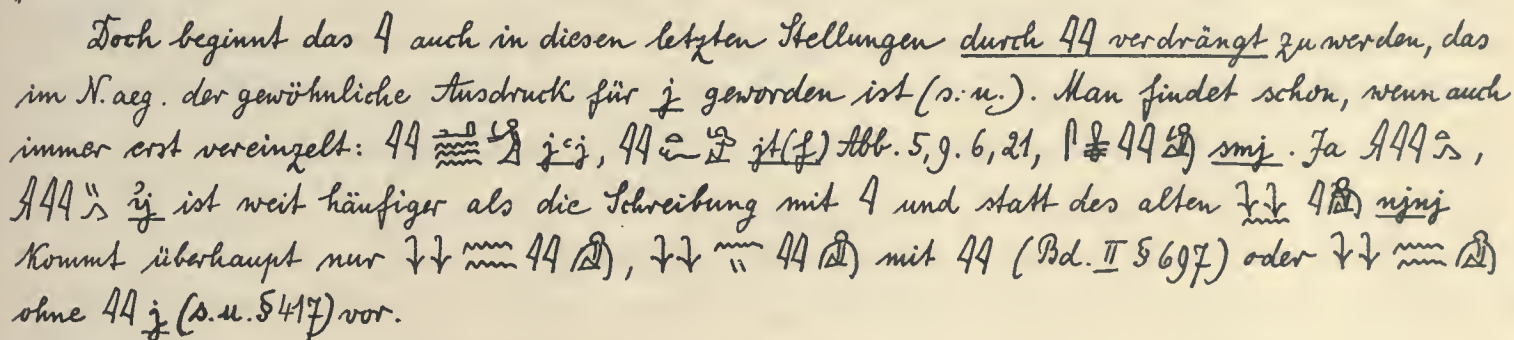 Doch beginnt das 𓇋 auch in diesen letzten Stellungen durch 𓇋𓇋 verdrängt zu werden, das
im N. aeg. der gewöhnliche Ausdruck für j geworden ist (s. u.). Man findet schon, wenn auch
immer erst vereinzelt: 𓇋𓇋 jꜥj, 𓇋𓇋 jt(f) Abb. 5, 9. 6, 21, 𓇋𓇋 smj. Ja 𓇋𓇋,
𓇋𓇋 ij ist weit häufiger als die Schreibung mit 𓇋 und statt des alten 𓇋 njnj
kommt überhaupt nur 𓇋𓇋, 𓇋𓇋 mit 𓇋𓇋 (Bd. II § 697) oder
ohne 𓇋𓇋 j (s. u. § 417) vor.